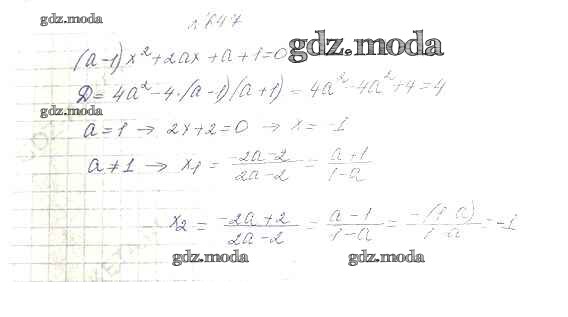 № 647
gdz.moda
(a-1)x²+2ax+a+1=0
gdz.moda
D = 4a²-4·(a-1)(a+1) = 4a²-4a²+4=4
gdz.moda
a=1 → 2x+2=0 → x= -1
a≠1 → x₁ = (-2a-2)/(2a-2) = (a+1)/(1-a)
x₂ = (-2a+2)/(2a-2) = (a-1)/(1-a) = (-(1 a))/(1 a) = -1
gdz.moda gdz.moda